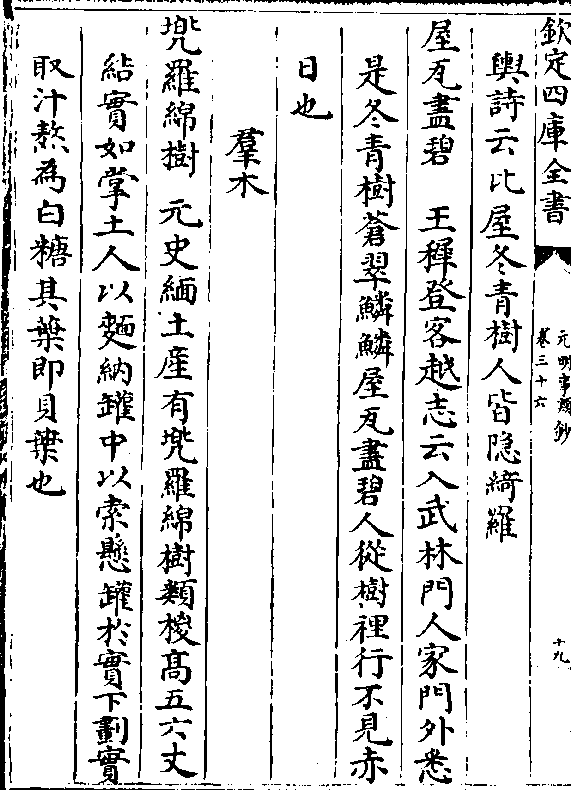 欽定四庫全書
元明事類鈔
卷三十六
十九
輿詩云比屋冬青樹人皆隐綺羅
屋瓦盡碧　王穉登客越志云入武林門人家門外悉
是冬青樹蒼翠鱗鱗屋瓦盡碧人從樹裡行不見赤
日也
羣木
兠羅綿樹　元史緬土産有兠羅綿樹類椶髙五六丈
結實如掌土人以麵納罐中以索懸罐於實下劃實
取汁熬為白糖其葉即貝葉也